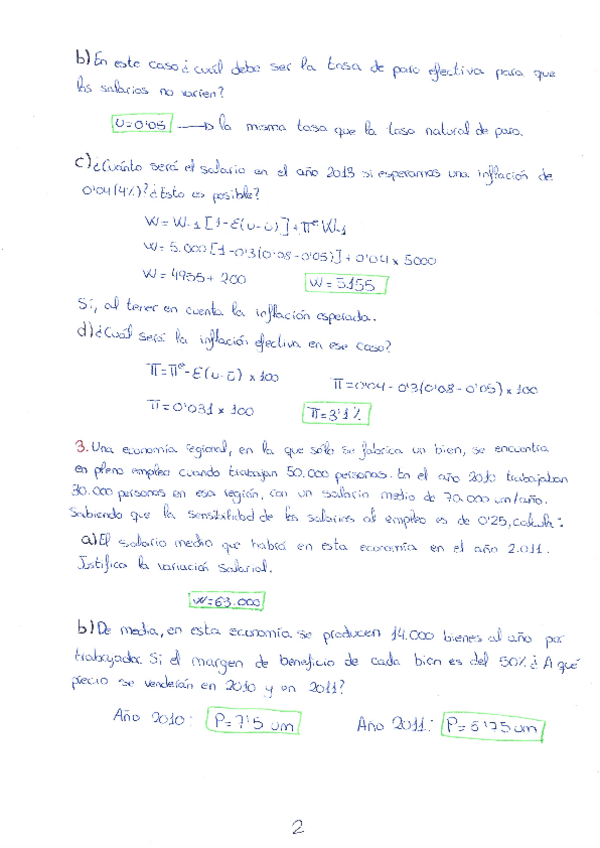 b) En este caso ¿cuál debe ser la tasa de paro efectiva para que
los salarios no varíen?
U=0'05 → la misma tasa que la tasa natural de paro.
c) ¿Cuánto será el salario en el año 2013 si esperamos una inflación de
0'04 (4%)? ¿Esto es posible?
W = W-1 [1-ε(u-ū)] + πe W-1
W = 5.000 [1-0'3(0'08-0'05)] + 0'04 x 5000
W = 4955 + 200 W = 5155
Sí, al tener en cuenta la inflación esperada.
d) ¿Cuál será la inflación efectiva en ese caso?
π = πe - ε(u-ū) x 100 π = 0'04 - 0'3(0'08 - 0'05) x 100
π = 0'031 x 100 π = 3'1%
3. Una economía regional, en la que sólo se fabrica un bien, se encuentra
en pleno empleo cuando trabajan 50.000 personas. En el año 2010 trabajaban
30.000 personas en esa región, con un salario medio de 70.000 um/año.
Sabiendo que la sensibilidad de los salarios al empleo es de 0'25, calcula:
a) El salario medio que habrá en esta economía en el año 2.011.
Justifica la variación salarial.
W=63.000
b) De media, en esta economía se producen 14.000 bienes al año por
trabajador. Si el margen de beneficio de cada bien es del 50% ¿A qué
precio se venderán en 2010 y en 2011?
Año 2010: P=7'5 um Año 2011: P=6'75 um
2